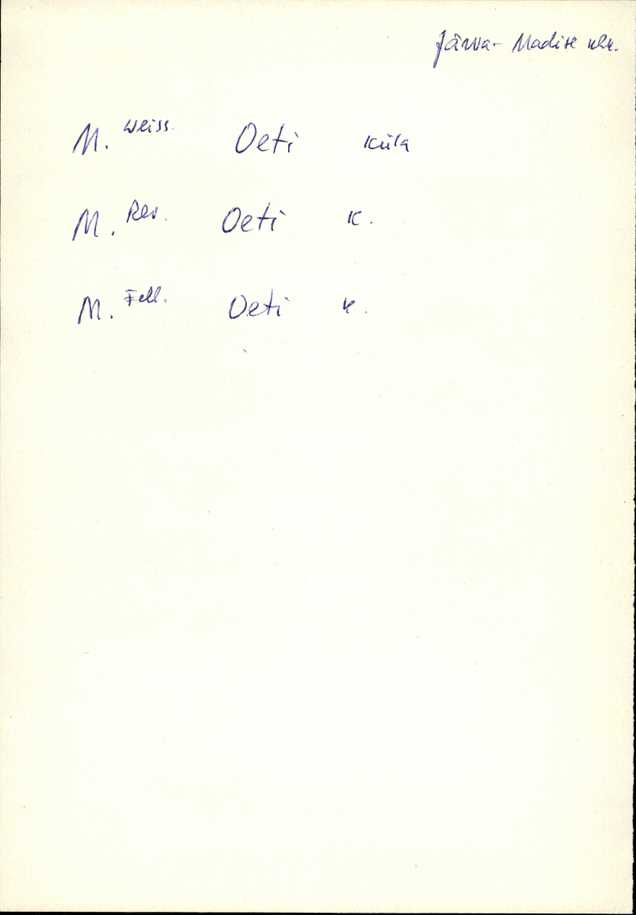 Järva-Madise khk.
M. Weiss. Oeti küla
M. Rev. Oeti k.
M. Fell. Oeti k.